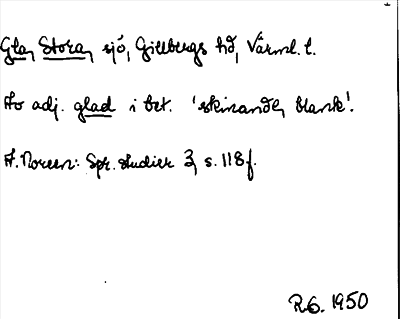 Gla, Stora, sjö, Gillbergs hd, Värml. l.
Av adj. glad i bet. 'skinande, blank'.
A. Noreen: Spr. studier 3, s. 118 f.
R.G. 1950